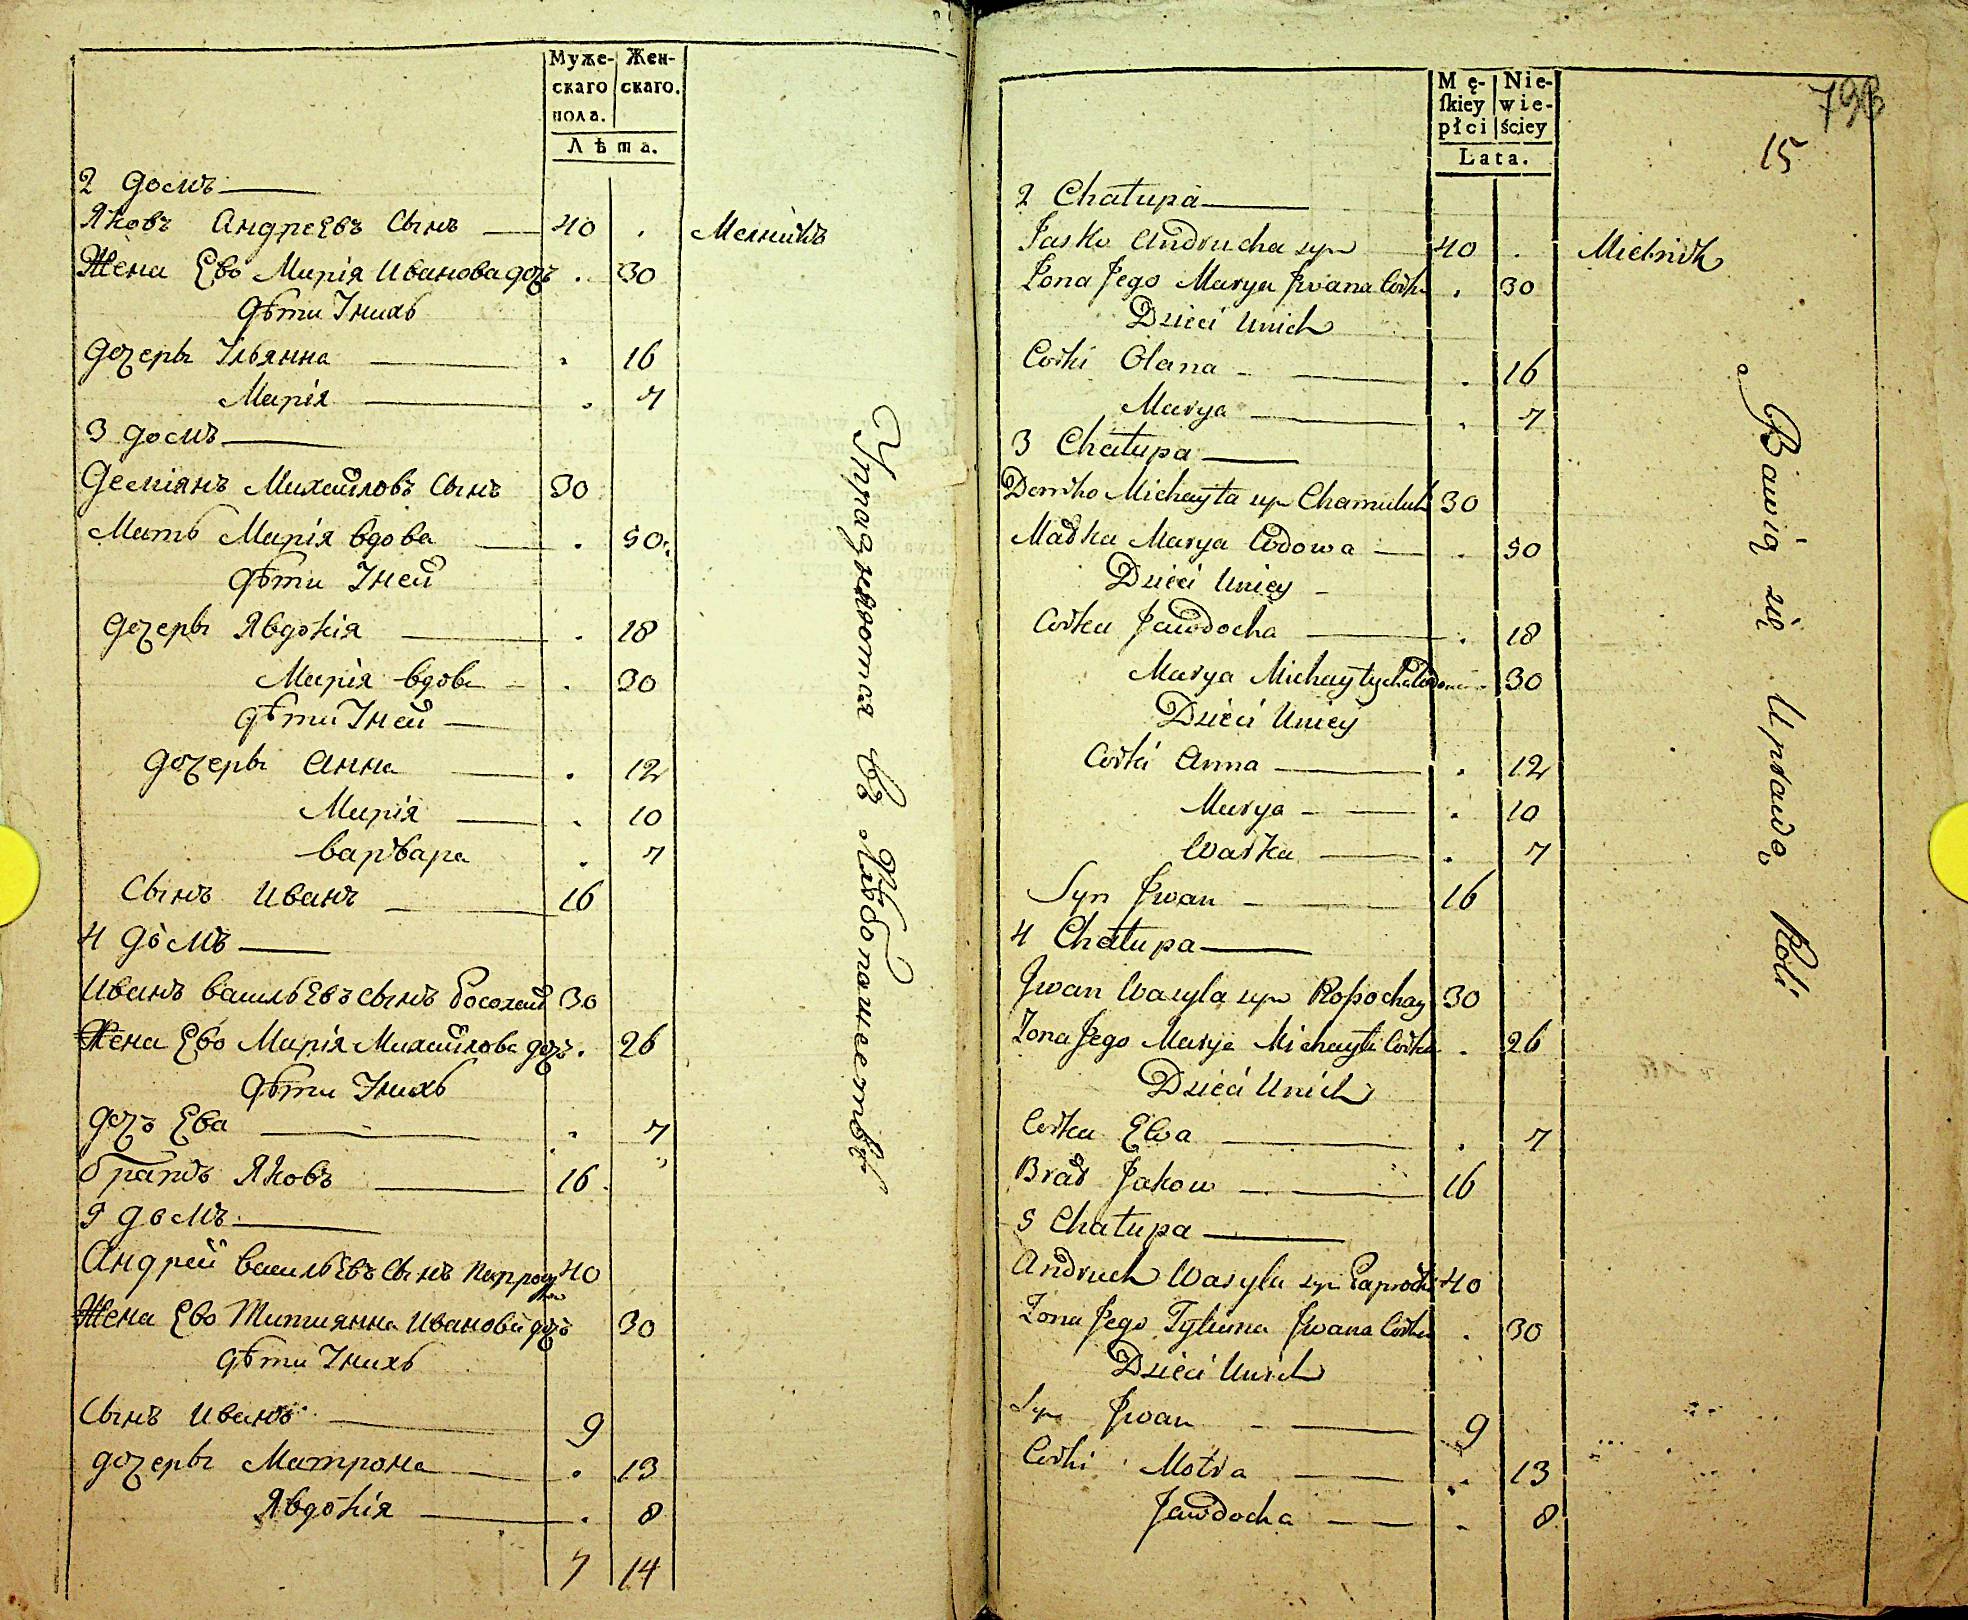 Муже- Жен-
скаго скаго.
пола.
Лѣта.
2 домъ
Яковъ Андреевъ сынъ 40 . Мелникъ
Жена Ево Марія Иванова дочь . 30
дѣти Унихъ
дочерьи Ульянна . 16
Марія . 7
3 домъ
Деміянъ Михайловъ сынъ 30
Мать Марія вдова . 50
дѣти Уней
дочерьи Явдокія . 18
Марія вдова . 30
дѣти Уней
дочерьи Анна . 12
Марія . 10
варвара . 7
Сынъ Иванъ 16
4 домъ
Иванъ васильЕвъ сынъ 30
Жена Ево Марія Михайлова дочь . 26
дѣти Унихъ
дочь Ева . 7
братъ Яковъ 16
5 домъ
Андрей васильЕвъ сынъ 40
Жена Ево Татиянна Иванова дочь 30
дѣти Унихъ
Сынъ Иванъ 9
дочерьи Матрона . 13
Явдокія . 8
7 14
Упражняются въ Хлѣбопашествѣ
Mę- Nie-
ſkiey wie-
płci ściey
Lata.
798
15
2 Chałupa
Jasko Andrucha syn 40 . Mielnik
Żona Jego Marya Jwana Corka . 30
Dzieci Unich
Corki Olana . 16
Marya . 7
3 Chałupa
Demko Michayła syn 30
Madka Marya Wdowa . 50
Dzieci Uniey
Corka Jawdocha . 18
Marya Michayłycha Wdowa . 30
Dzieci Uniey
Corki Anna . 12
Marya . 10
Warka . 7
Syn Jwan 16
4 Chałupa
Jwan Wasyla syn 30
Żona Jego Marya Michayła Corka . 26
Dzieci Unich
Corka Ewa . 7
Brad Jakow 16
5 Chałupa
Andruch Wasyla syn Paprocki 40
Żona Jego Jwana Corka . 30
Dzieci Unich
Syn Jwan 9
Corki Motra . 13
Jawdocha . 8
Bawią się Uprawą Roli